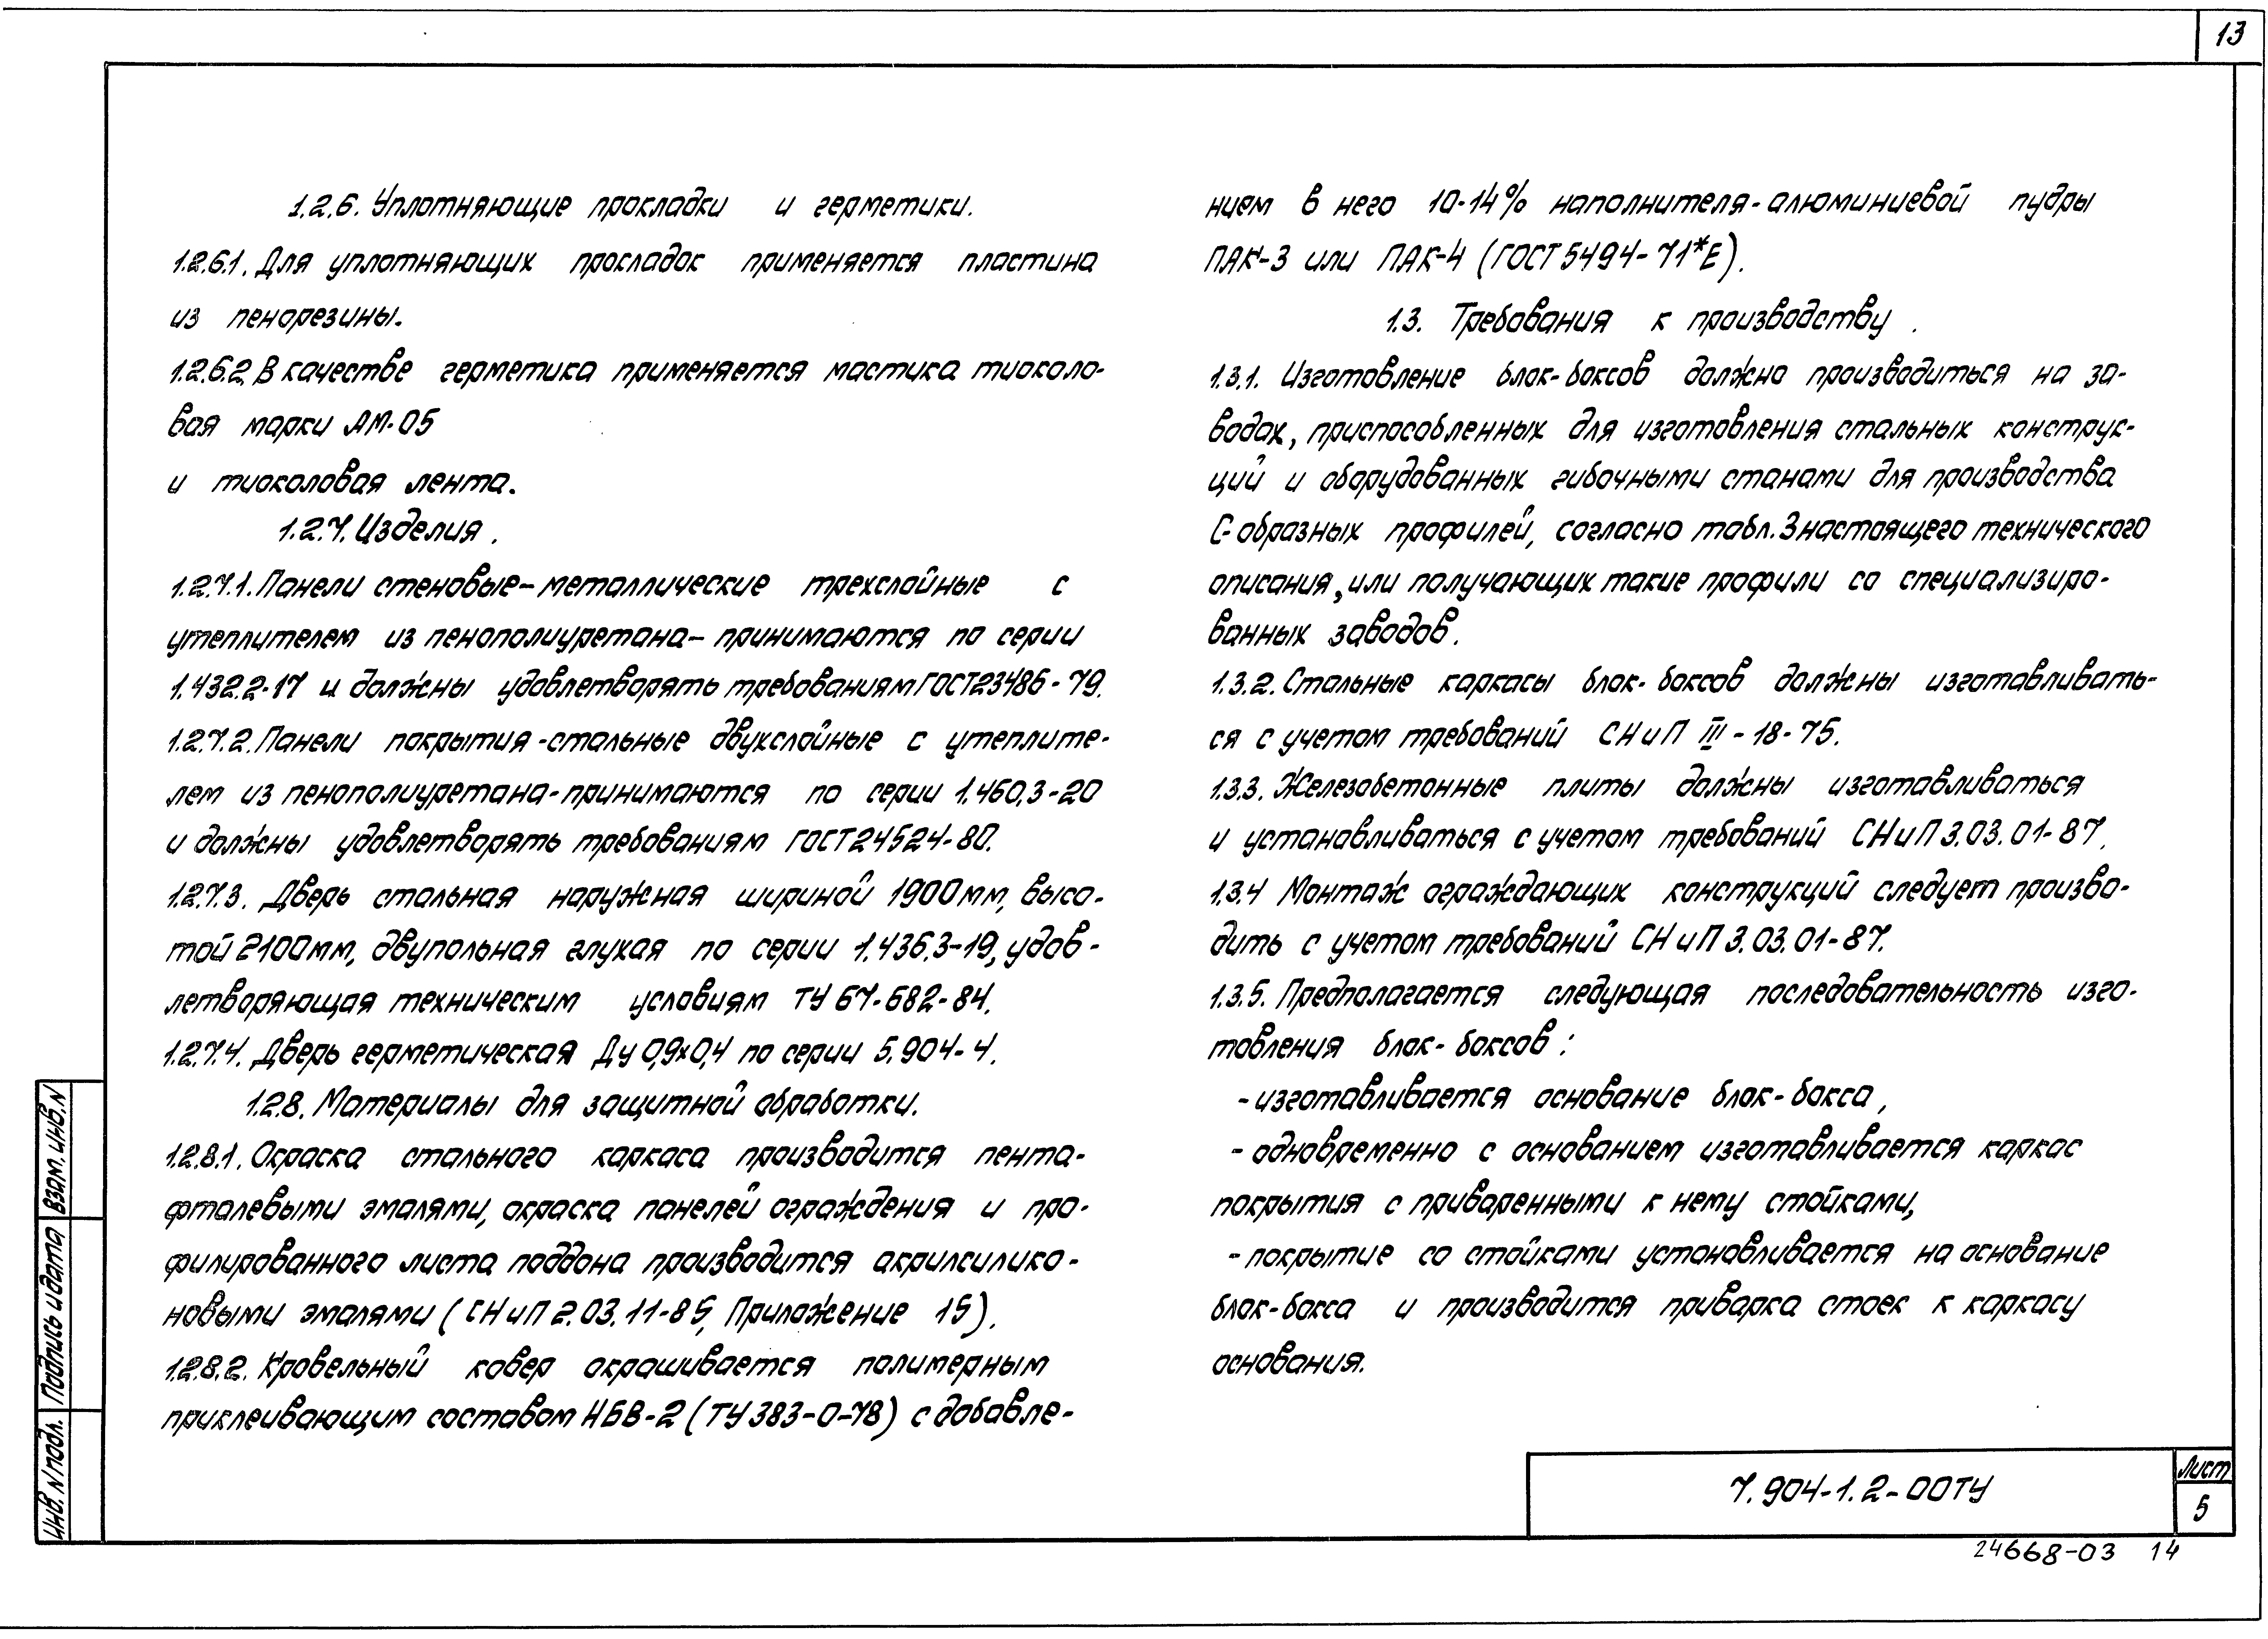 13
1.2.6. Уплотняющие прокладки и герметики.
1.2.6.1. Для уплотняющих прокладок применяется пластина
из пенорезины.
1.2.6.2. В качестве герметика применяется мастика тиоколо-
вая марки АМ-05
и тиоколовая лента.
1.2.7. Изделия.
1.2.7.1. Панели стеновые-металлические трехслойные с
утеплителем из пенополиуретана-принимаются по серии
1.432.2-17 и должны удовлетворять требованиям ГОСТ 23486-79.
1.2.7.2. Панели покрытия-стальные двухслойные с утеплите-
лем из пенополиуретана-принимаются по серии 1.460.3-20
и должны удовлетворять требованиям ГОСТ 24524-80.
1.2.7.3. Дверь стальная наружная шириной 1900мм, высо-
той 2100мм, двупольная глухая по серии 1.436.3-19, удов-
летворяющая техническим условиям ТУ 67-682-84.
1.2.7.4. Дверь герметическая Ду 0,9х0,4 по серии 5.904-4.
1.2.8. Материалы для защитной обработки.
1.2.8.1. Окраска стального каркаса производится пента-
фталевыми эмалями, окраска панелей ограждения и про-
филированного листа поддона производится акрилсилико-
новыми эмалями (СНиП 2.03.11-85, Приложение 15).
1.2.8.2. Кровельный ковер окрашивается полимерным
приклеивающим составом НБВ-2 (ТУ 383-0-78) с добавле-
нием в него 10-14% наполнителя-алюминиевой пудры
ПАК-3 или ПАК-4 (ГОСТ 5494-71*Е).
1.3. Требования к производству.
1.3.1. Изготовление блок-боксов должно производиться на за-
водах, приспособленных для изготовления стальных конструк-
ций и оборудованных гибочными станами для производства
С-образных профилей, согласно табл.3 настоящего технического
описания, или получающих такие профили со специализиро-
ванных заводов.
1.3.2. Стальные каркасы блок-боксов должны изготавливать-
ся с учетом требований СНиП III-18-75.
1.3.3. Железобетонные плиты должны изготавливаться
и устанавливаться с учетом требований СНиП 3.03.01-87.
1.3.4 Монтаж ограждающих конструкций следует произво-
дить с учетом требований СНиП 3.03.01-87.
1.3.5. Предполагается следующая последовательность изго-
товления блок-боксов:
-изготавливается основание блок-бокса,
-одновременно с основанием изготавливается каркас
покрытия с приваренными к нему стойками,
-покрытие со стойками установливается на основание
блок-бокса и производится приварка стоек к каркасу
основания.
Инв. N подл. Подпись и дата Взам. инв. N
7.904-1.2-00ТУ
Лист
5
24668-03 14